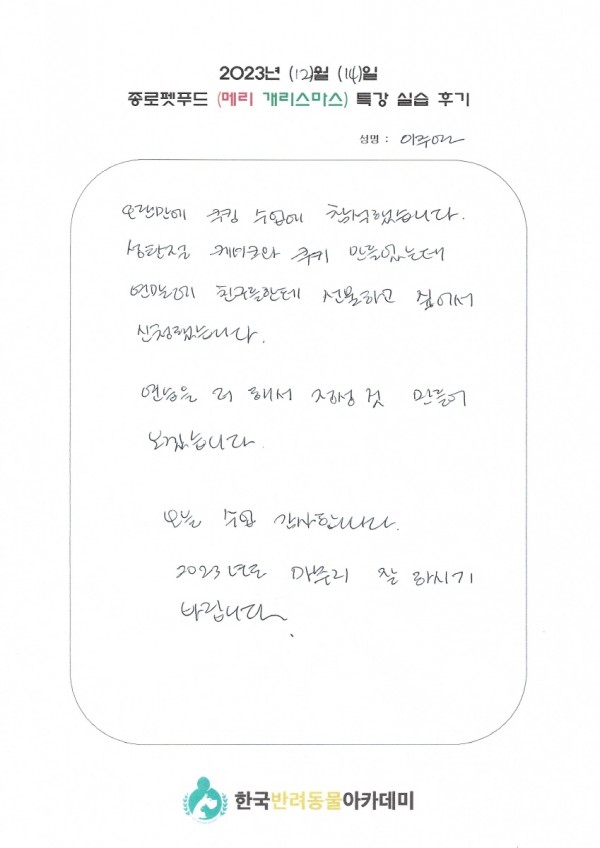 2023년 (12)월 (14)일
종로펫푸드 (메리 개리스마스) 특강 실습 후기
성명 :
오랜만에 쿠킹 수업에 참석했습니다.
성탄절 케이크와 쿠키 만들었는데
연말에 친구들한테 선물하고 싶어서
신청했습니다.
연습을 더 해서 정성 것 만들어
보겠습니다.
오늘 수업 감사합니다.
2023년도 마무리 잘 하시기
바랍니다.
한국반려동물아카데미